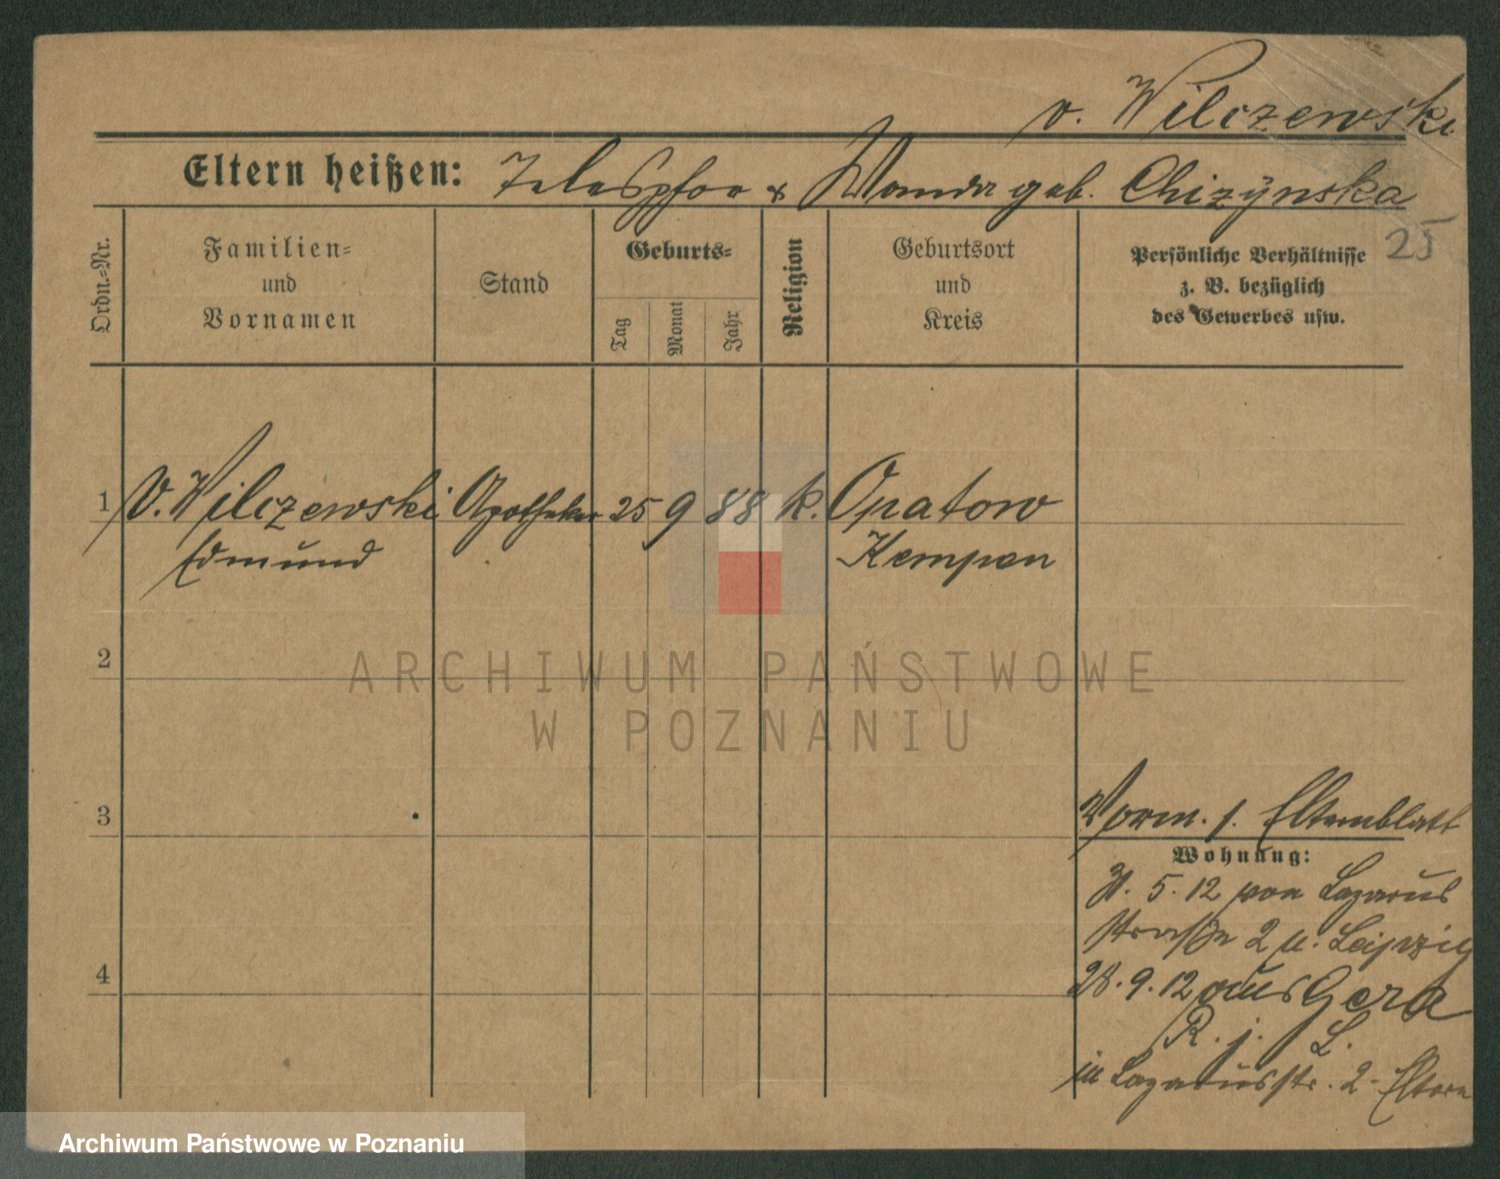 v. Wilczewski
Eltern heißen: Telesphor & Wanda geb. Chizÿnska
25
Ordn.-Nr.
Familien-
und
Vornamen
Stand
Geburts-
Tag
Monat
Jahr
Religion
Geburtsort
und
Kreis
Persönliche Verhältnisse
z. B. bezüglich
des Gewerbes usw.
1 v. Wilczewski Apotheker 25 9 88 k. Opatow
Edmund Kempen
2
ARCHIWUM PAŃSTWOWE
W POZNANIU
3
Vorm. s. Elternblatt
Wohnung:
5. 12 von Lazarus
straße 2 n. Leipzig
4
28. 9. 12 aus Gera
R. j. L.
in Lazarusstr. 2 - Eltern
Archiwum Państwowe w Poznaniu